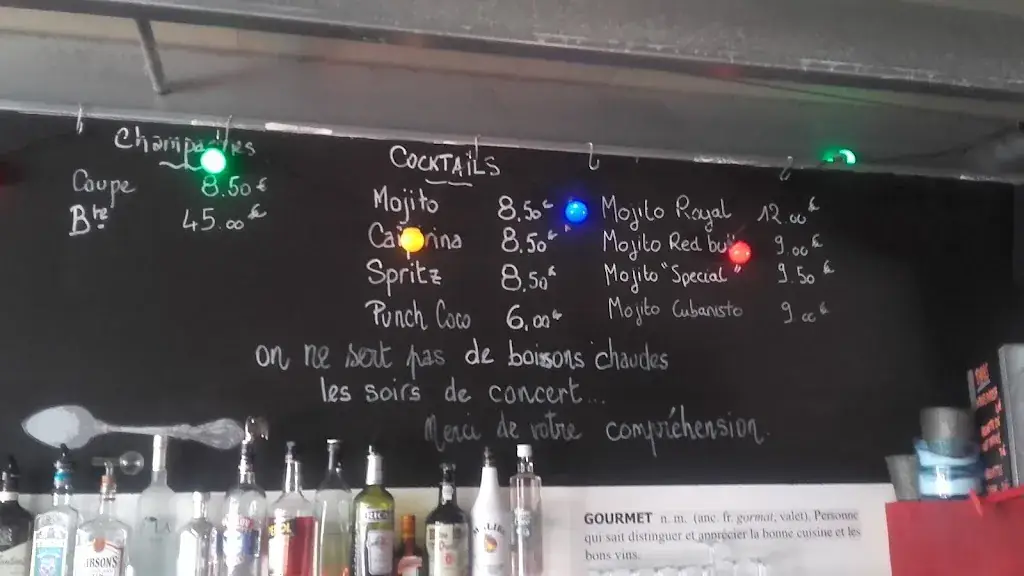 Champagnes
Coupe 8.50 €
Bte 45.00 €
COCKTAILS
Mojito 8.50€
8.50€
Spritz 8.50€
Punch Coco 6,00€
Mojito Royal 12.00€
Mojito Red bull 9.00€
Mojito "Special" 9.50€
Mojito Cubanisto 9.00€
on ne sert pas de boissons chaudes
les soirs de concert...
Merci de votre compréhension.
GOURMET n. m. (anc. fr. gormat, valet). Personne
qui sait distinguer et apprécier la bonne cuisine et les
bons vins.